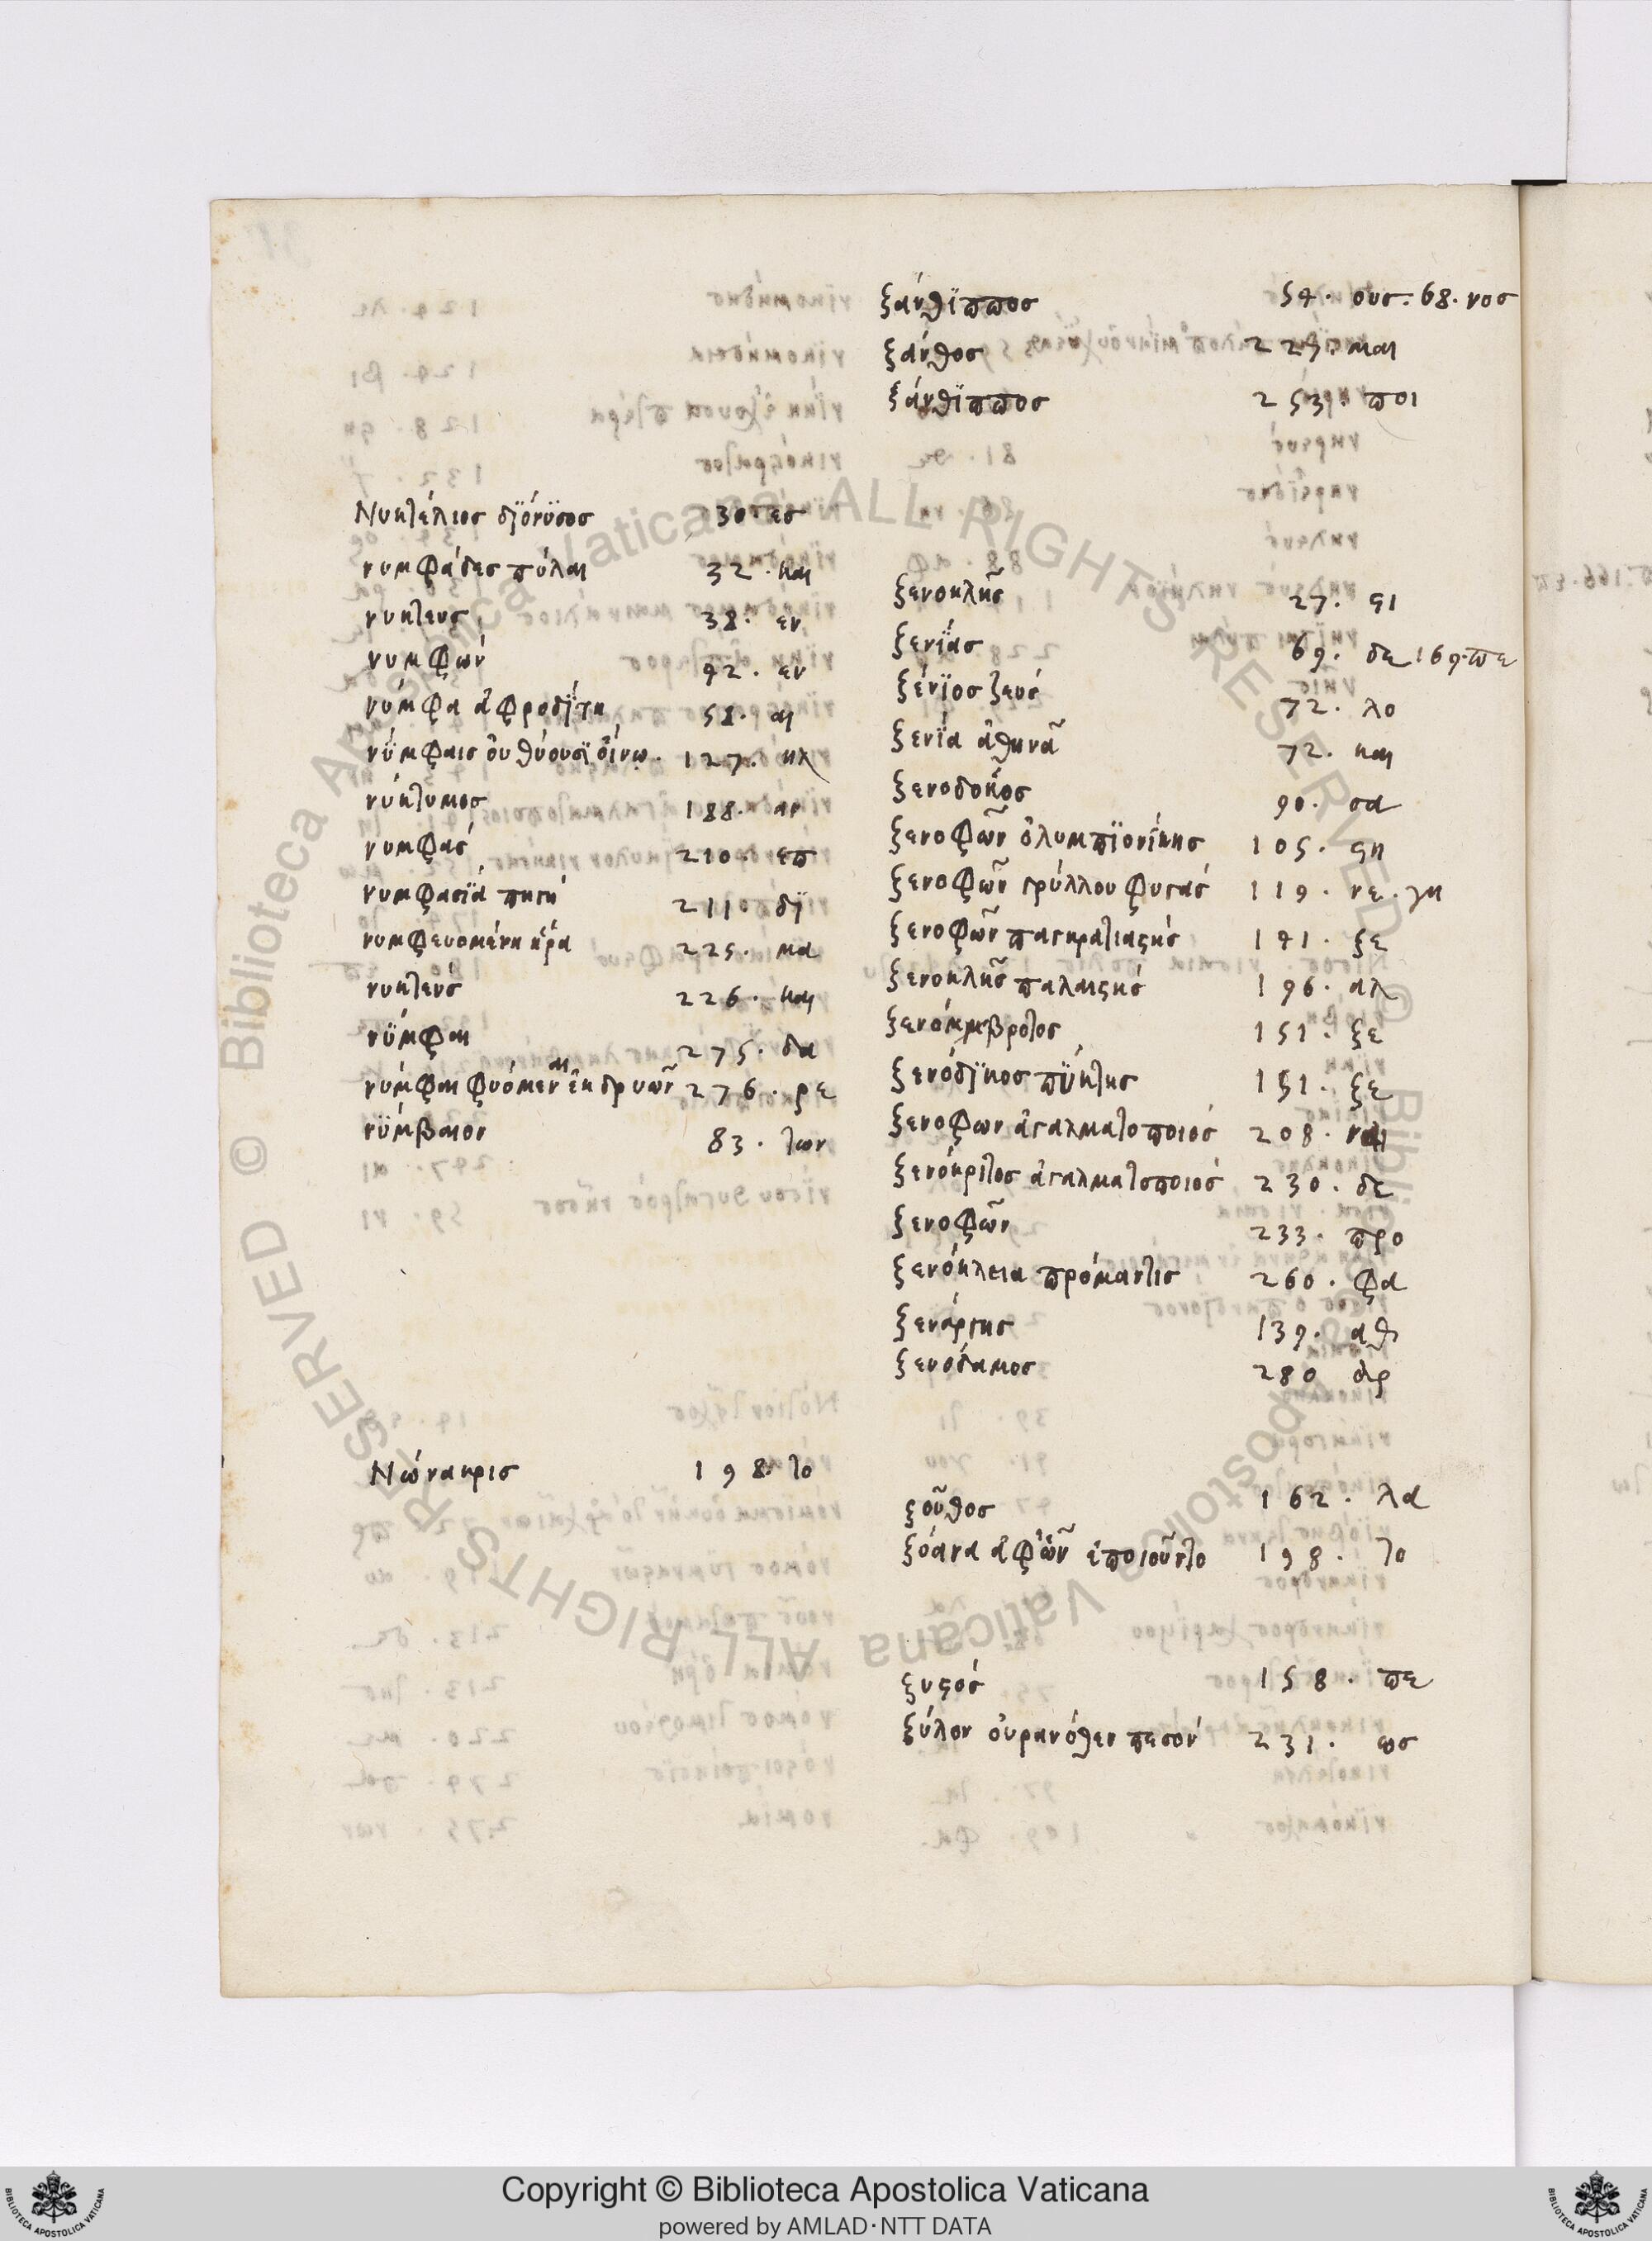 Νυκτέλιος διόνϋσος 30. εσ
νυμφάδες πύλαι 32. και
νυκτευς 38. εν
νυμφών 42. εν
νύμφα ἀφροδίτη 58. αι
νΰμφαις οὐ θύουσϊ οἴνῳ. 127. κλ
νύκτυμος 188. αρ
νυμφάς 210. επ
νυμφασϊά πηγή 211. δϊ
νυμφευομένη ἥρα 225. μα
νυκτεύς 226. και
νΰμφαι 275. δα
νύμφαι φυόμεναι ἐκ δρυῶν 276. ρε
νΰμβαιον 83. των
Νώνακρις 198. το
ξάνθϊππος 54. ους. 68. νος
ξάνθος 225. μαι
ξάνθϊππος 253. ποι
ξενοκλῆς 27. στι
ξενΐας 69. δε 169. πε
ξένϊος ζευς 72. λο
ξενΐα ἀθηνᾶ 72. και
ξενοδοκος 90. σα
ξενοφῶν ὀλυμπϊονίκης 105. στη
ξενοφῶν γρύλλου φυγάς 119. νε. γη
ξενοφῶν παγκρατιαστής 141. ξε
ξενοκλῆς παλαιστής 196. αλ
ξενόμβροτος 151. ξε
ξενόδϊκος πΰκτης 151. ξε
ξενοφων ἀγαλματοποιός 208. ναι
ξενόκριτος ἀγαλματοποιός 230. δε
ξενοφῶν 233. προ
ξενόκλεια πρόμαντις 260. φα
ξενάργης 139. αθ
ξενοδαμος 280 αρ
ξοῦθος 162. λα
ξόανα ἀφ' ὧν ἐποιοῦντο 198. το
ξυστός 158. πε
ξύλον οὐρανόθεν πεσόν 231. ωσ
Copyright © Biblioteca Apostolica Vaticana
powered by AMLAD·NTT DATA